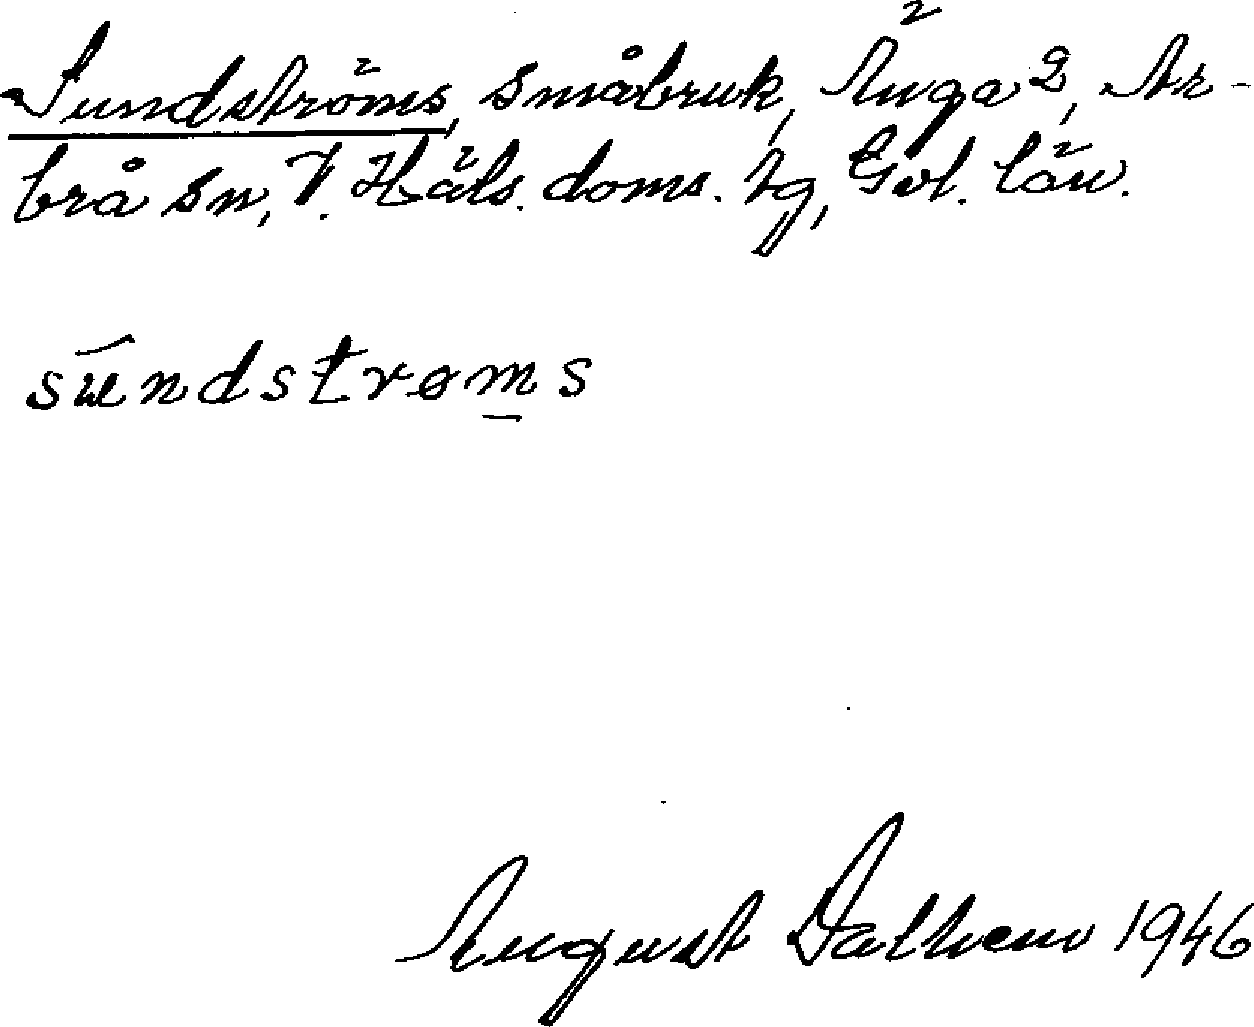 Sundströms, småbruk, Änga 2, Ar-
brå sn, V. Häls. doms. tg, Gvl. län.
sundstrøms
August Dalhem 1946